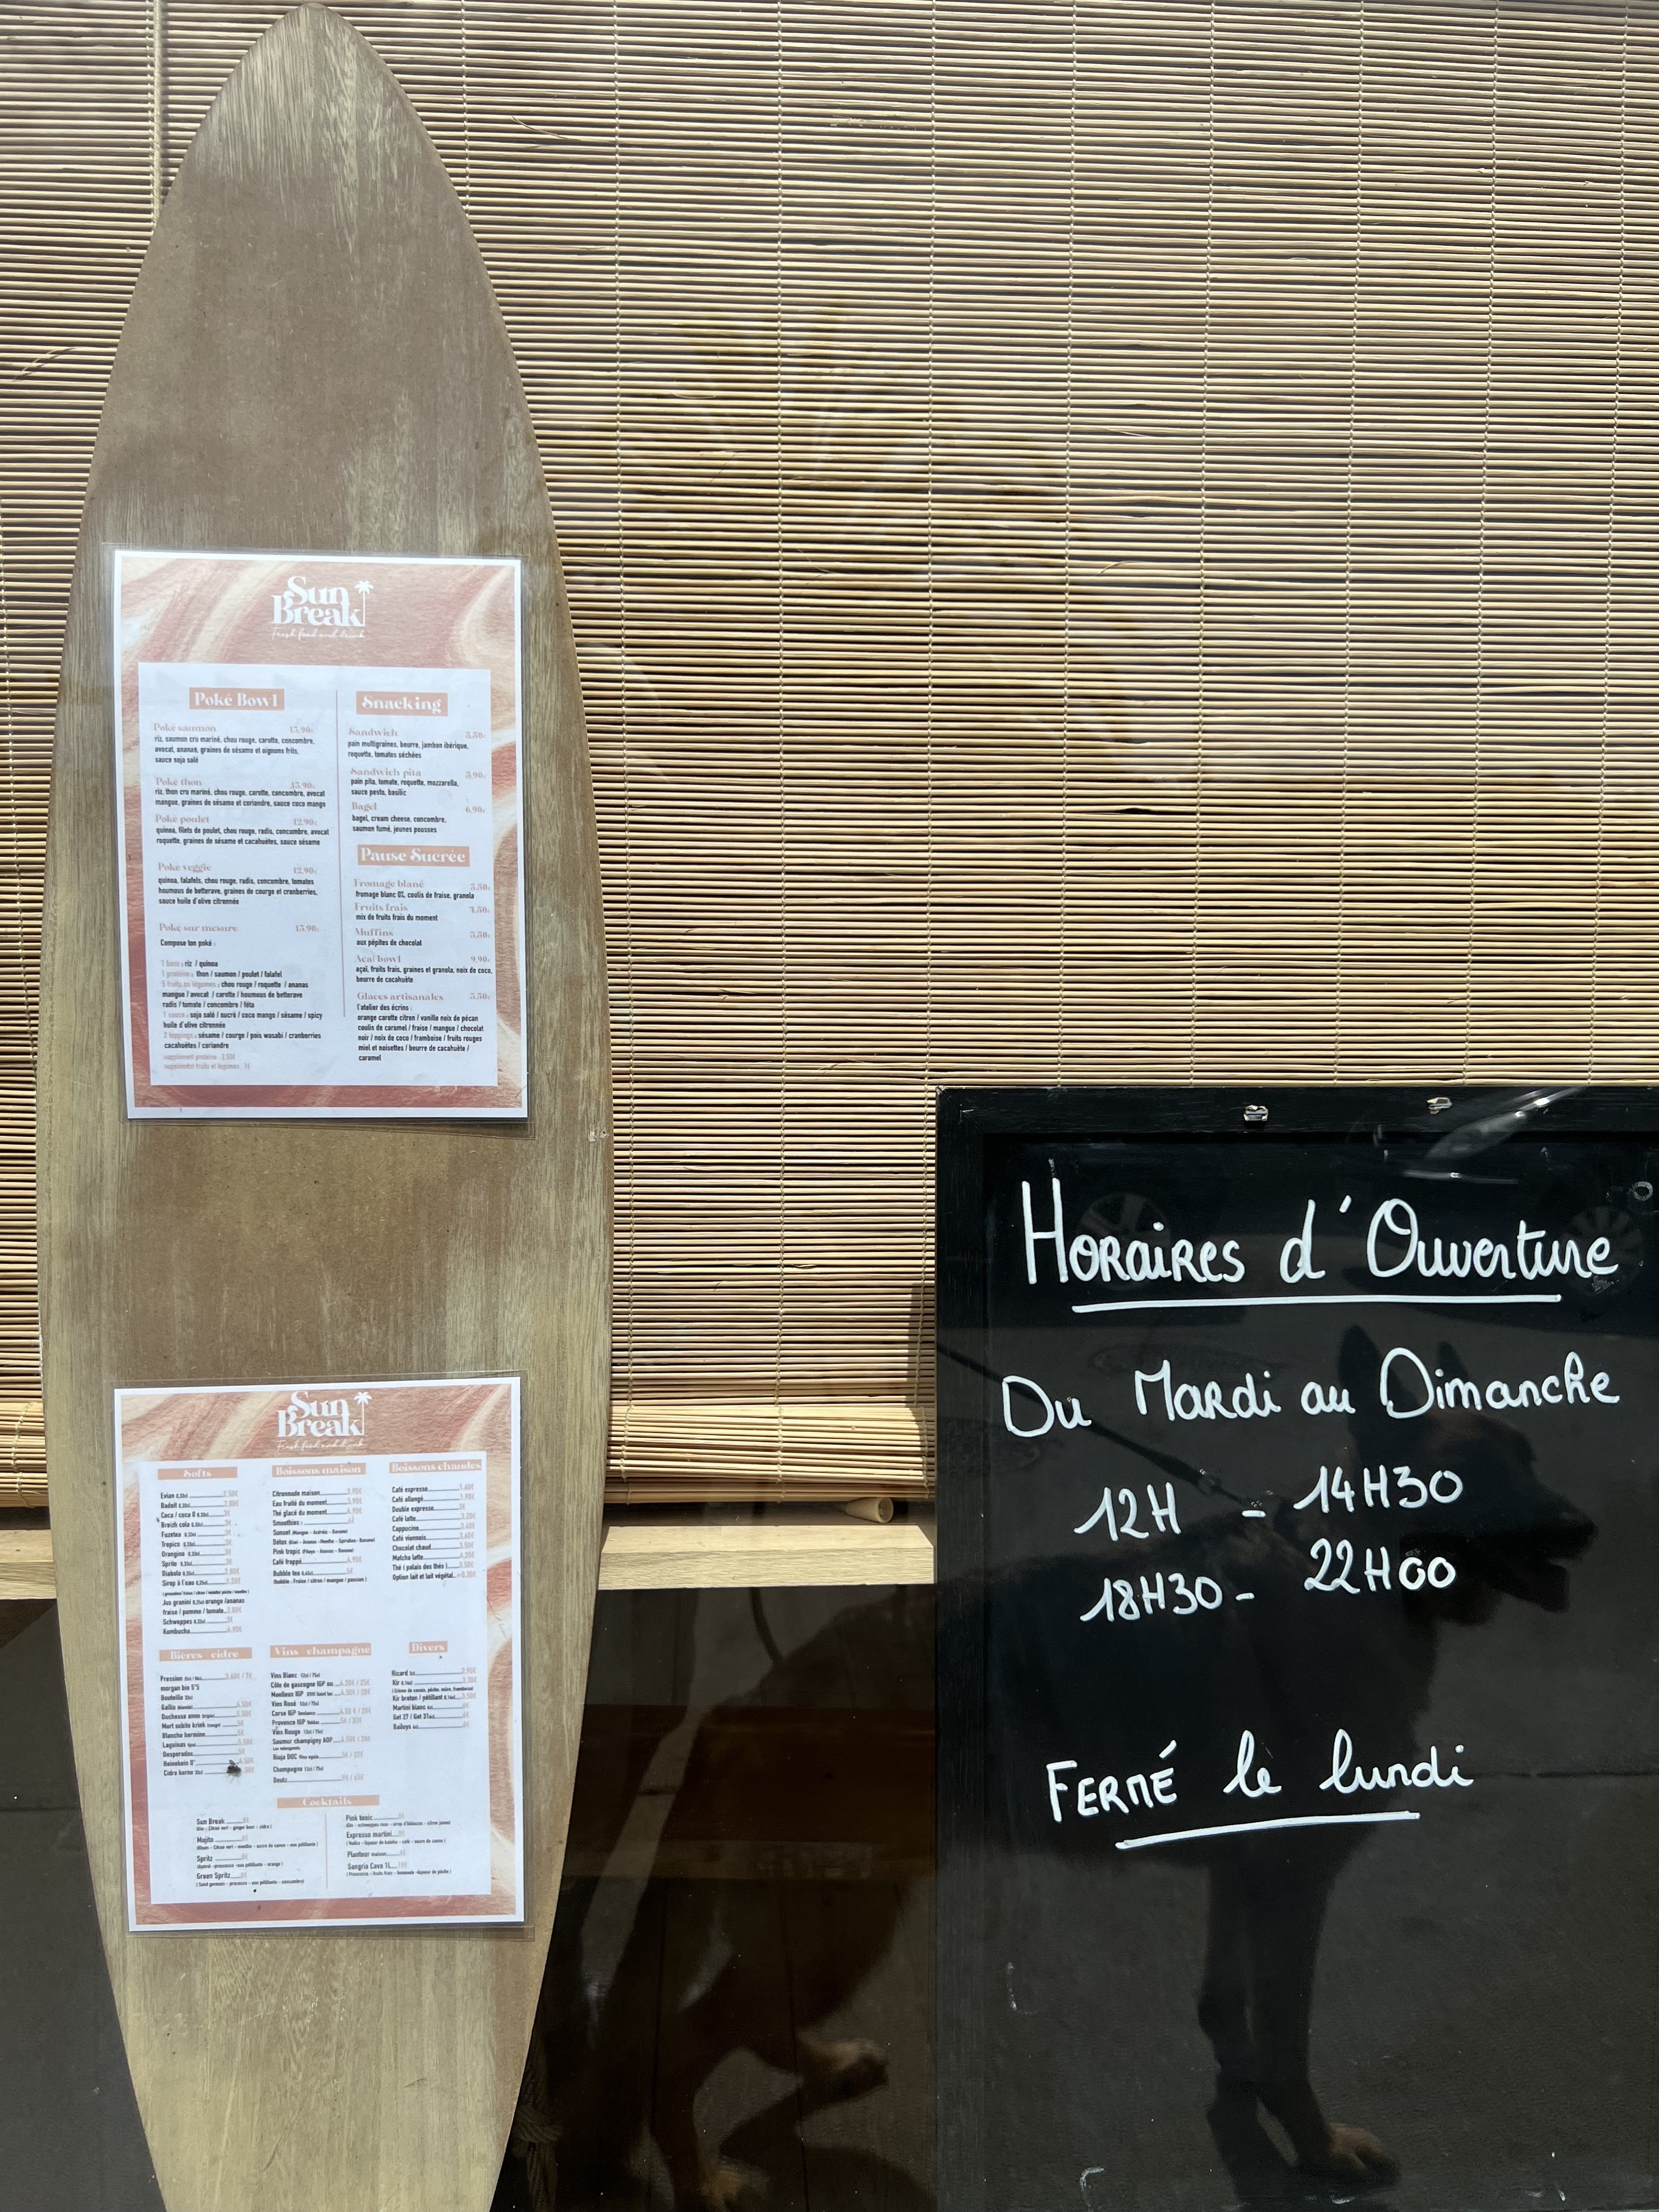 Sun
Break
Fresh food and drink
Poké Bowl
Poké saumon 13,90€
riz, saumon cru mariné, chou rouge, carotte, concombre,
avocat, ananas, graines de sésame et oignons frits,
sauce soja salé
Poké thon 13,90€
riz, thon cru mariné, chou rouge, carotte, concombre, avocat
mangue, graines de sésame et coriandre, sauce coco mango
Poké poulet 12,90€
quinoa, filets de poulet, chou rouge, radis, concombre, avocat
roquette, graines de sésame et cacahuètes, sauce sésame
Poké veggie 12,90€
quinoa, falafels, chou rouge, radis, concombre, tomates
houmous de betterave, graines de courge et cranberries,
sauce huile d'olive citronnée
Poké sur mesure 13,90€
Compose ton poké :
1 base : riz / quinoa
1 protéine : thon / saumon / poulet / falafel
5 fruits ou légumes : chou rouge / roquette / ananas
mangue / avocat / carotte / houmous de betterave
radis / tomate / concombre / féta
1 sauce : soja salé / sucré / coco mango / sésame / spicy
huile d'olive citronnée
2 toppings : sésame / courge / pois wasabi / cranberries
cacahuètes / coriandre
supplément protéine : 2,50€
supplément fruits et légumes : 1€
Snacking
Sandwich
pain multigraines, beurre, jambon ibérique,
roquette, tomates séchées
Sandwich pita 5,90€
pain pita, tomate, roquette, mozzarella,
sauce pesto, basilic
Bagel 6,90€
bagel, cream cheese, concombre,
saumon fumé, jeunes pousses
Pause Sucrée
Fromage blanc 3,50€
fromage blanc 0%, coulis de fraise, granola
Fruits frais 3,50€
mix de fruits frais du moment
Muffins 3,50€
aux pépites de chocolat
Açaï bowl 9,90€
açaï, fruits frais, graines et granola, noix de coco,
beurre de cacahuète
Glaces artisanales 3,50€
l'atelier des écrins :
orange carotte citron / vanille noix de pécan
coulis de caramel / fraise / mangue / chocolat
noir / noix de coco / framboise / fruits rouges
miel et noisettes / beurre de cacahuète /
caramel
Sun
Break
Fresh food and drink
Softs
Evian
Badoit
Coca / coca 0
Breizh cola
Fuzetea
Tropico
Orangina
Sprite
Diabolo
Sirop à l'eau
Jus granini orange /ananas
fraise / pomme / tomate
Schweppes
Kombucha
Boissons maison
Citronnade maison
Eau fruité du moment
Thé glacé du moment
Smoothies :
Sunset
Détox
Pink tropic
Café frappé
Bubble tea
Boissons chaudes
Café expresso
Café allongé
Double expresso
Café latte
Cappucino
Café viennois
Chocolat chaud
Matcha latte
Thé ( palais des thés )
Option lait et lait végétal
Bières cidre
Pression
morgan bio 5°5
Bouteille
Gallia
Duchesse anne
Mort subite kriek
Blanche hermine
Lagunitas
Desperados
Heineken 0°
Cidre kerne
Vins champagne
Vins Blanc
Côte de gascogne IGP
Moelleux IGP
Vins Rosé
Corse IGP
Provence IGP
Vins Rouge
Saumur champigny AOP
Rioja DOC
Champagne
Deutz
Divers
Ricard
Kir
Kir breton / pétillant
Martini blanc
Get 27 / Get 31
Baileys
Cocktails
Sun Break
Mojito
Spritz
Green Spritz
Pink tonic
Expresso martini
Planteur maison
Sangria Cava 1L
Horaires d'Ouverture
Du Mardi au Dimanche
12H - 14H30
18H30 - 22H00
Fermé le lundi